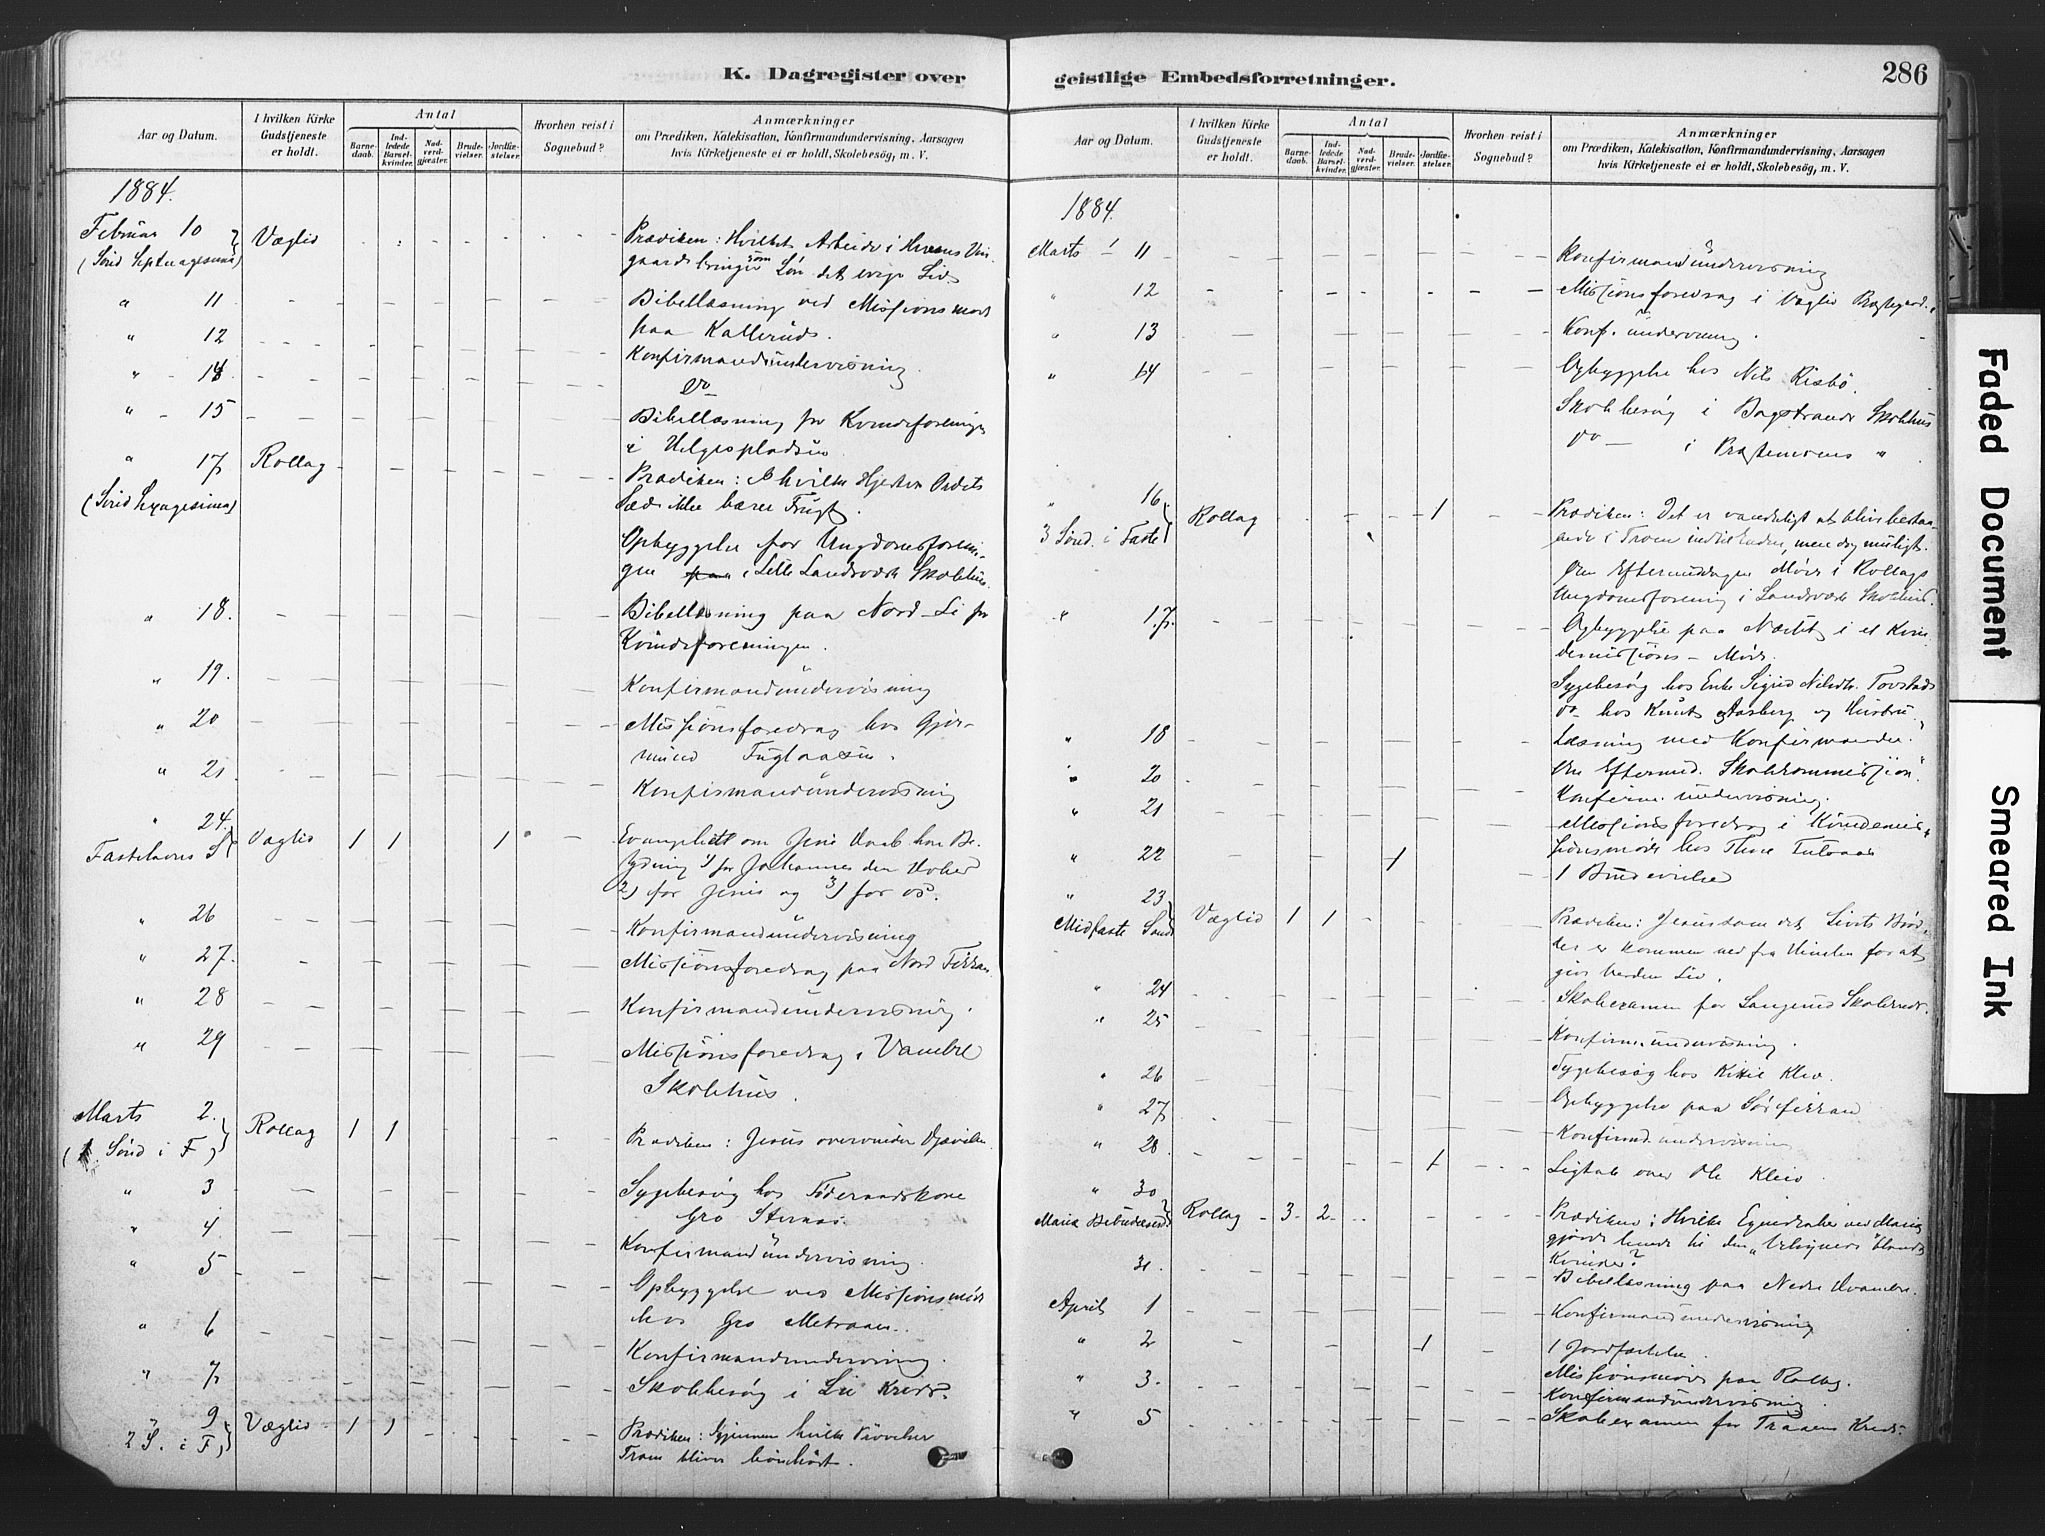 K. Dagregister over
Aar og Datum.
I hvilken Kirke Gudstjeneste er holdt.
Antal
Barnedaab.
Indledede Barselkvinder.
Nadverdgjæster.
Brudevielser.
Jordfæstelser.
Hvorhen reist i Sognebud?
Anmærkninger
om Prædiken, Katekisation, Konfirmandundervisning, Aarsagen
hvis Kirketjeneste ei er holdt, Skolebesøg, m. V.
1884.
Februar 10 Væglid Prædiken: Hvilket Arbeide i Herrens Vin-
(Sønd Septuagesima) gaard bringer som Løn det evige Liv.
" 11 Bibellæsning ved Missionsmøde
paa Kallerud.
" 12 Konfirmandundervisning
" - 14 do
" - 15 Bibellæsning for Kvindeforeningen
i Helgespladsen
" 17 Rollag Prædiken: I hvilke Hjerter Ordets
(Sønd Sexagesima) Sæd ikke bærer Frugt.
Opbyggelse for Ungdomsforenin-
gen i Lille Landsværk Skolehus.
" 18. Bibellæsning paa Nord-Li for
Kvindeforeningen.
" 19. Konfirmandundervisning
" 20 Missionsforedrag hos Gjør-
mund Fuglaasen.
" 21. Konfirmandundervisning
" 24. Væglid 1 1 1 Evangeliet om Jesu Daab har Be-
Fastelavns S. tydning 1) for Johannes den Døber
2) for Jesus og 3) for os.
" 26 Konfirmandundervisning
" 27. Missionsforedrag paa Nord Fikkan
" 28 Konfirmandundervisning.
" 29 Missionsforedrag i Vambel
Skolehus.
Marts 2. Rollag 1 1 Prædiken: Jesus overvinder Djævelen
(1. Sønd i F.)
" 3 Sygebesøg hos Føderaadskone
Gro Sternes.
" 4. Konfirmandundervisning.
" 5 Opbyggelse ved Missionsmøde
hos Gro Metraaen.
" 6 Konfirmandundervisning.
" 7 Skolebesøg i Lie Kreds.
" 9 Væglid 1 1 Prædiken: Gjennem hvilke Prøvelser
2 S. i F. Troen bliver bønhørt.
geistlige Embedsforretninger.
286
Aar og Datum.
I hvilken Kirke Gudstjeneste er holdt.
Antal
Barnedaab.
Indledede Barselkvinder.
Nadverdgjæster.
Brudevielser.
Jordfæstelser.
Hvorhen reist i Sognebud?
Anmærkninger
om Prædiken, Katekisation, Konfirmandundervisning, Aarsagen
hvis Kirketjeneste ei er holdt, Skolebesøg, m. V.
1884.
Marts - 11 Konfirmandundervisning
" 12 Missionsforedrag i Væglid Præstegaard.
" 13 Konf. undervisning.
" 14 Opbyggelse hos Nils Risbø.
Skolebesøg i Bagstrands Skolehus
do - i Præstemoens "
" 16 Rollag 1 Prædiken: Det er vanskeligt at blive bestaa-
3 Sønd. i Faste ende i Troen indtil Enden, men dog muligt.
Om Eftermiddagen Møde i Rollags
Ungdomsforening i Landsværk Skolehus.
" 17. Opbyggelse paa i et Kvin-
demissions-Møde.
Sygebesøg hos Enke Sigrid Nilsdtr. Tovstad
do hos Knut Aasberg og Hustru.
" 18 Læsning med Konfirmander.
" 20 Om Eftermid. Skolekommission.
" 21 Konfirm. undervisning.
Missionsforedrag i Kvindemis-
sionsmøde hos
" 22 1 1 Brudevielse
" 23 Væglid 1 1 Prædiken: Jesus som det Livets Brød,
Midfaste Sønd der er kommen ned fra Himlen for at
give Verden Liv.
" 24 Skoleexamen for Langerud Skolekreds.
" 25 Konfirm. undervisning.
" 26 Sygebesøg hos Kittil Kleiv.
" 27 Opbyggelse paa Sørfikkan
" 28 Konfirmd. undervisning
1 Ligtale over Ole Kleiv.
" 30 Rollag 3 2 Prædiken: Hvilke Egenskaber ved Maria
Mariæ Bebudelsesd. gjorde hende til den "Velsignede" blandt
Kvinder?
31. Bibellæsning paa Nedre Kvambe.
April 1 Konfirmandundervisning
" 2 1 1 Jordfæstelse.
" 3. Missionsmøde paa Rollag.
Konfirmandundervisning
" 5 Skoleexamen for Traaens Kreds.
Faded Document
Smeared Ink